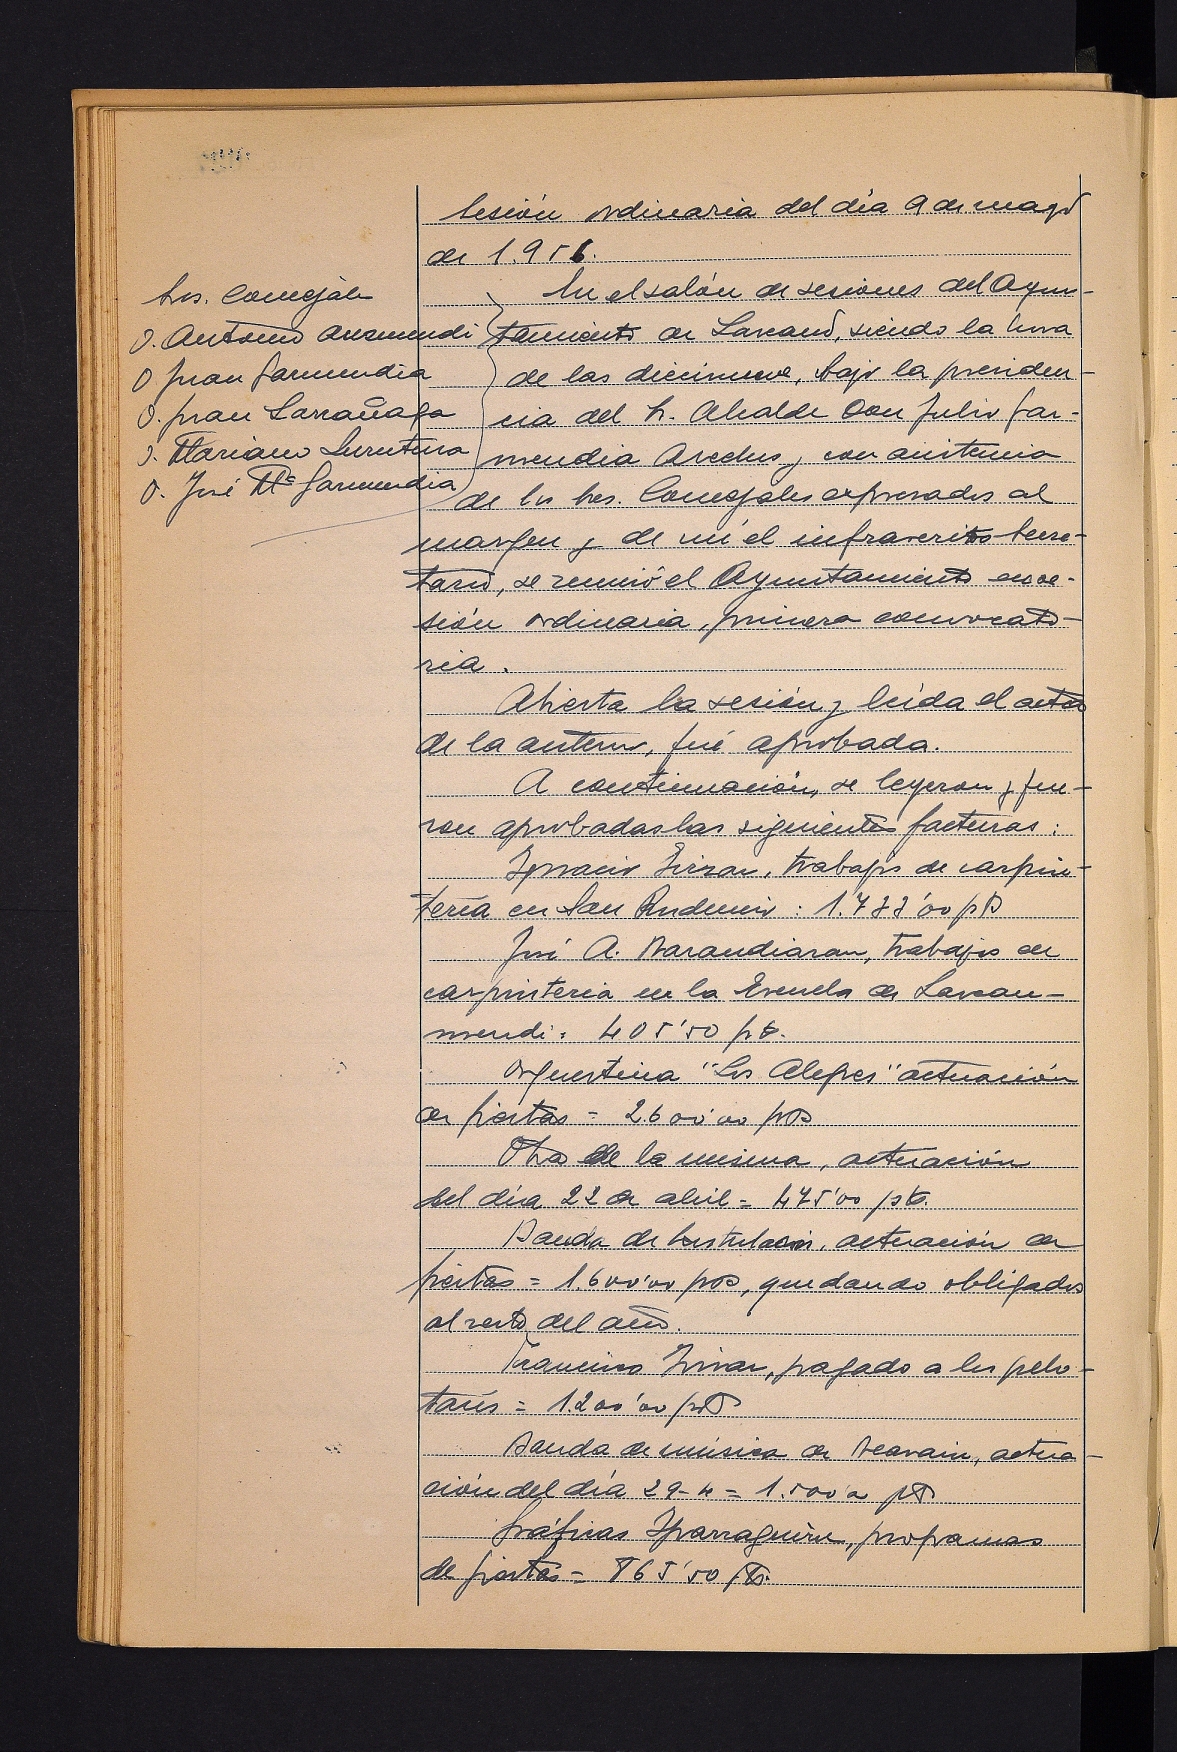 Sesión ordinaria del día 9 de mayo
de 1.956.
Sres. Concejales
D. Antonio Auzmendi
D. Juan Garmendia
D. Juan Larrañaga
D. Mariano Lurutura
D. José Mª Garmendia
En el salón de sesiones del Ayun-
tamiento de Lazcano, siendo la hora
de las diecinueve, bajo la presiden-
cia del Sr. Alcalde Don Julio Gar-
mendia y con asistencia
de los Sres. Concejales expresados al
margen y de mí el infrascrito Secre-
tario, se reunió el Ayuntamiento en se-
sión ordinaria, primera convocato-
ria.
Abierta la sesión y leída el acta
de la anterior, fué aprobada.
A continuación, se leyeron y fue-
ron aprobadas las siguientes facturas:
Ignacio trabajos de carpin-
tería en San Prudencio: 1.733'00 pts
José A. Barandiaran, trabajos de
carpintería en la Escuela de Lazcau-
mendi: 405'50 pts.
Orquestina "Los Alegres" actuación
de fiestas = 2.600'00 pts
Otra de la misma, actuación
del día 22 de abril = 475'00 pts.
Banda de actuación de
fiestas = 1.600'00 pts, quedando obligados
al resto del año.
Francisco pagado a los pelo-
taris = 1.200'00 pts
Banda de música de Beasain, actua-
ción del día 29-4 = 1.500'00 pts
Gráficas Yparraguirre, programas
de fiestas = 865'50 pts.